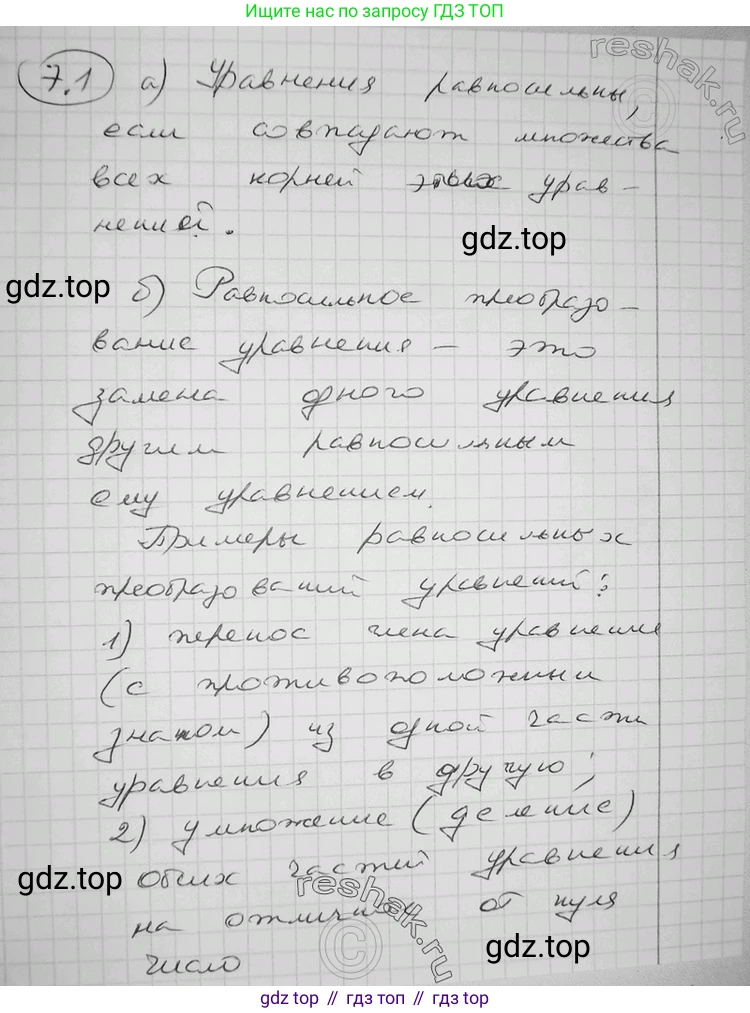 Ищите нас по запросу ГДЗ ТОП
7.1 а) Уравнения равносильны,
reshak.ru
если совпадают множества
всех корней этих урав-
нений.
gdz.top
gdz.top
б) Равносильное преобразо-
вание уравнения - это
замена одного уравнения
другим равносильным
ему уравнением.
Примеры равносильных
преобразований уравнений:
1) перенос члена уравнения
(с противоположным
знаком) из одной части
уравнения в другую;
2) умножение (деление)
обеих частей уравнения
gdz.top
reshak.ru
на отличное от нуля
gdz.top
©
число
gdz top // гдз топ // gdz top